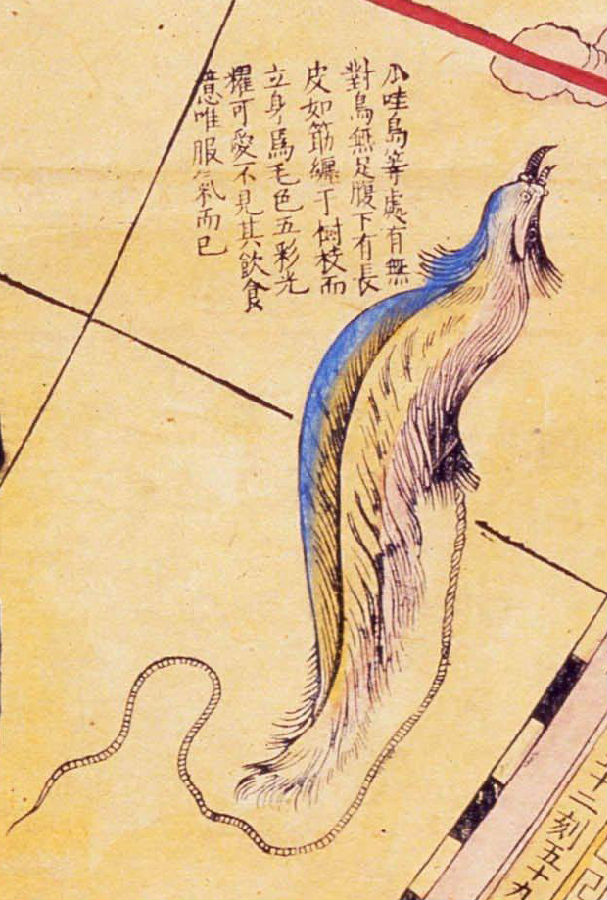 爪哇島等處有無
對鳥無足腹下有長
皮如筋纏于樹枝而
立身為毛色五彩光
耀可愛不見其飲食
意唯服氣而已
十二刻五十九